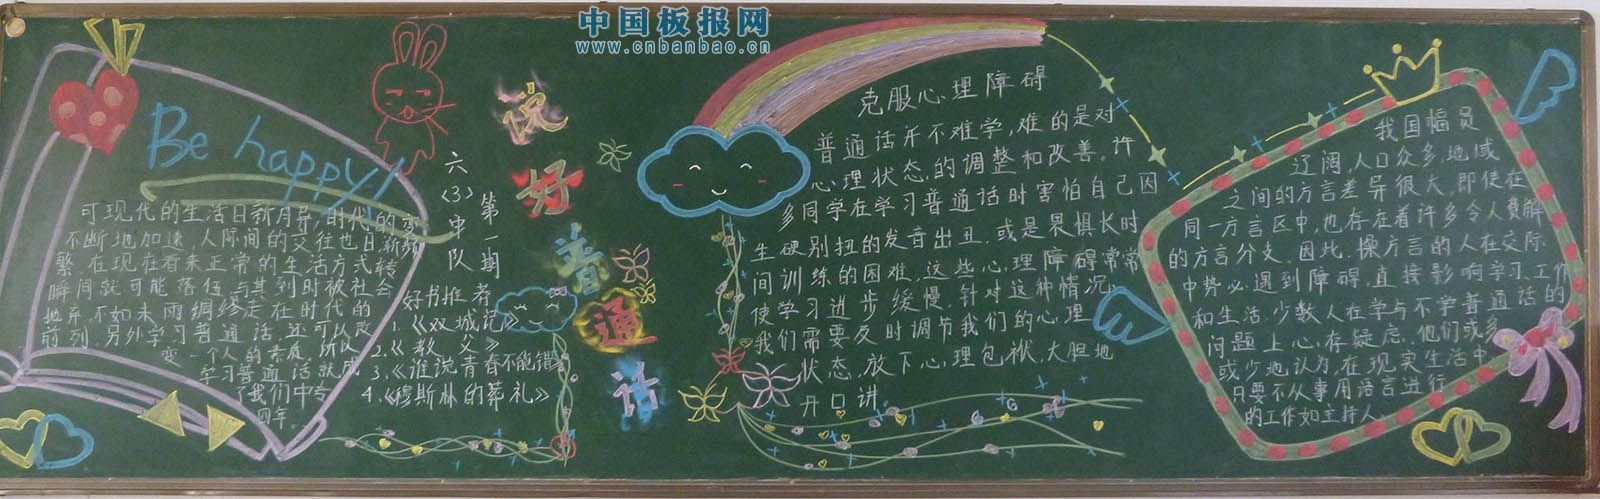 中国板报网
www.cnbanbao.cn
Be happy!
可现代的生活日新月异,时代的变
不断地加速,人际间的交往也日渐频
繁,在现在看来正常的生活方式转
瞬间就可能落伍,与其到时被社会
地弃,不如未雨绸缪走在时代的
前列,另外学习普通话,还可以改
变一个人的素质,所以
学习普通话就成
了我们中专
四年。
六(3)中队
第一期
好书推荐
1.《双城记》
2.《教父》
3.《谁说青春不能错》
4.《穆斯林的葬礼》
说好普通话
克服心理障碍
普通话并不难学,难的是对
心理状态,的调整和改善。许
多同学在学习普通话时害怕自己因
生硬别扭的发音出丑,或是畏惧长时
间训练的困难,这些心理障碍常常
使学习进步缓慢,针对这种情况,
我们需要及时调节我们的心理
状态,放下心理包袱,大胆地
开口讲。
我国幅员
辽阔,人口众多,地域
之间的方言差异很大,即使在
同一方言区中,也存在着许多令人费解
的方言分支。因此,操方言的人在交际
中势必遇到障碍,直接影响学习、工作
和生活,少数人在学与不学普通话的
问题上心存疑虑,他们或多
或少地认为,在现实生活中
只要不从事用语言进行
的工作如主持人